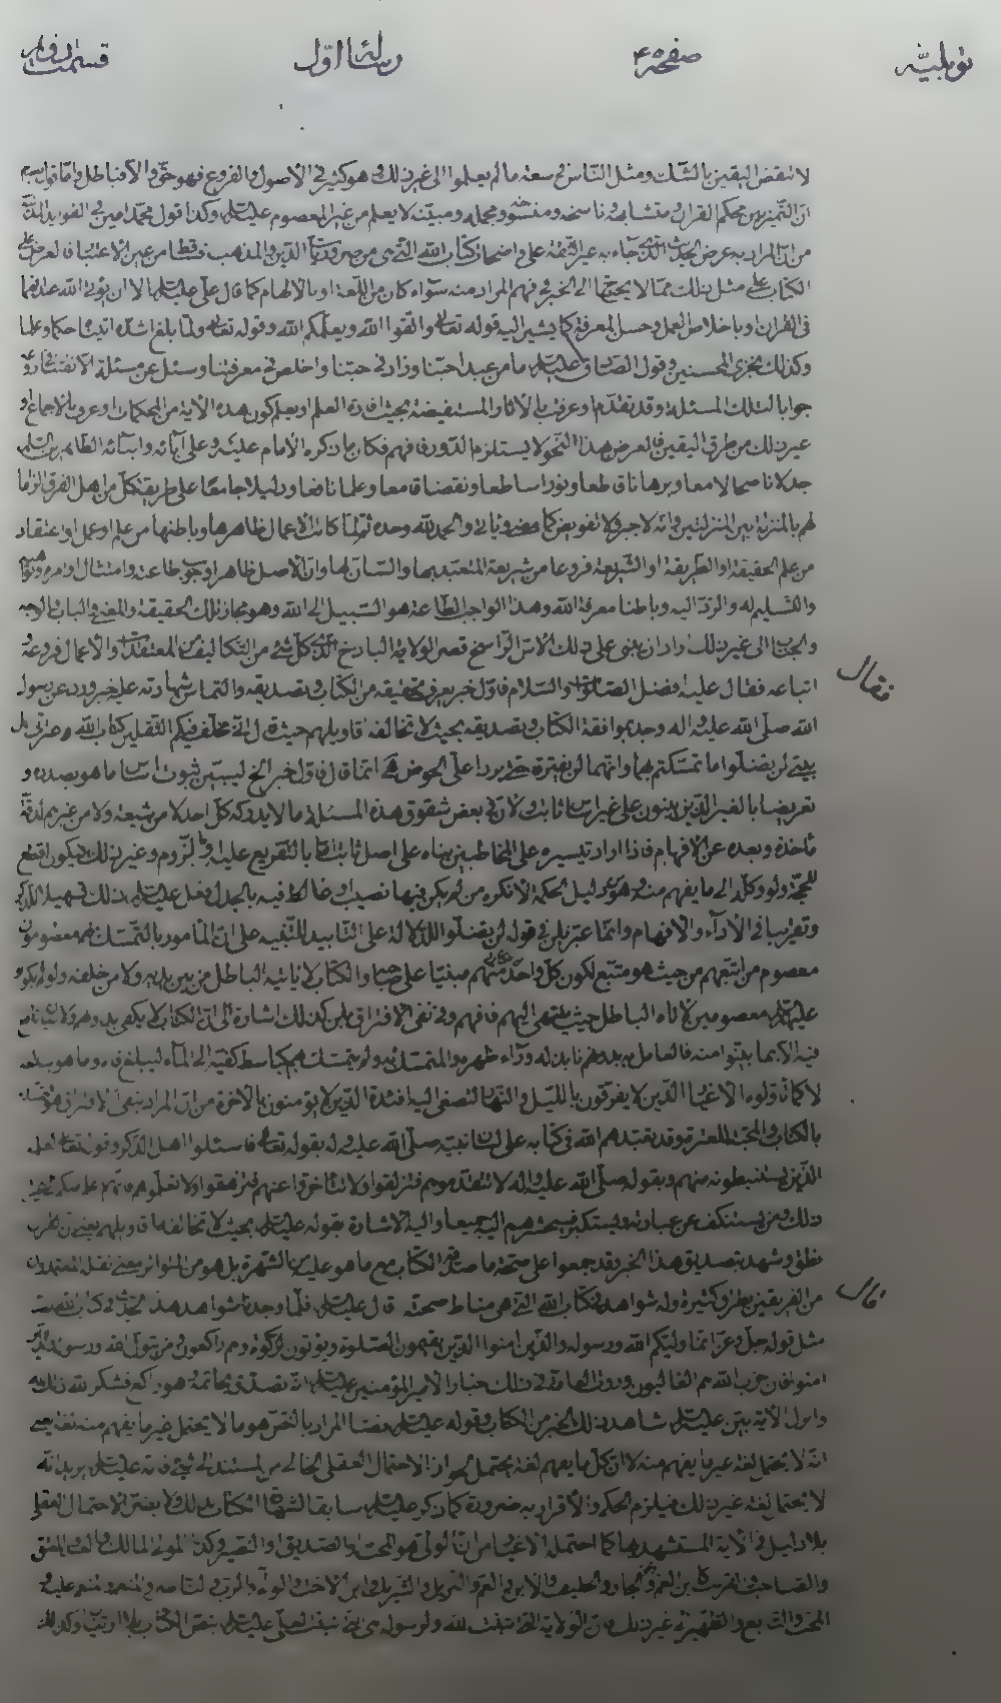 توبلیّه صفحه ۴۵ رسالهٔ اوّل
لا تنقض اليقين بالشّك ومثل النّاس فى سعة ما لم يعلموا الى غير ذلك وهو كثير فى الأصول والفروع فهو حقّ والّا فباطل وامّا قول
انّ التّميز بين محكم القران ومتشابهه وناسخه ومنسوخه ومجمله ومبيّنه لا يعلم من غير المعصوم عليه السلام وكذا قول محمّد امين فى الفوايد
من انّ المراد به عرض الحديث الّذى جآء به غير الثّقة على واضحات كتاب الله الّتى هى من ضروريّات الدّين والمذهب
الكتاب على مثل ذلك ممّا لا يحتاج الى الخبر فى فهم المراد منه سوآء كان من اللّغة او بالالهام كما قال علىّ عليه السلام الا ان يؤتى الله عبدا فهما
فى القران او باخلاص العمل وحسن المعرفة كما يشير اليه قوله تعالى واتّقوا الله ويعلّمكم الله وقوله تعالى ولمّا بلغ اشدّه اتيناه حكما وعلما
وكذلك نجزى المحسنين وقول الصّادق عليه السلام ما من عبد احبّنا وزاد فى حبّنا واخلص فى معرفتنا وسئل عن مسئلة الا نفثنا فى روعه
جوابا لتلك المسئلة وقد تقدّم او عرفت بالاثار المستفيضة بحيث افادت العلم او يعلم كون هذه الاية من المحكمات او عرف بالاجماع او
غير ذلك من طرق اليقين فالعرض هذا النّحو لا يستلزم الدّور فافهم فكان ما ذكره الامام عليه وعلى آبائه وابنائه الطّاهرين السّلم
جدلا ناصحا لامعا وبرهانا قاطعا ونورا ساطعا ونقضا قامعا وعلما نافعا ودليلا جامعا على طريقة كلّ من اهل الفرق الزاما
لهم بالمنزلة بين المنزلتين وانّه لا جبر ولا تفويض كما مضى وياتى والحمد لله وحده ثمّ لمّا كانت الاعمال ظاهرها وباطنها من علم وعمل واعتقاد
من علم الحقيقة او الطّريقة او الشّريعة فروعا من شريعة المتعبّد بها والسّانّ لها وانّ الاصل ظاهرا وجوب طاعته وامتثال اوامره ونواهيه
والتّسليم له والرّد اليه وباطنا معرفة الله وهذا الواجب الطّاعة هو السّبيل الى الله وهو مجاز تلك الحقيقة والمعنى والباب والوجه
والجناب الى غير ذلك اراد ان يبنى على ذلك الاسّ الرّاسخ قصر الولاية الباذخ الّذى كلّ شئ من التّكاليف من المعتقدات والاعمال فروعه
اتباعه فقال عليه افضل الصّلوة والسّلام فاوّل خبر يعرف تحقيقه من الكتاب وتصديقه والتماس شهادته عليه خبر ورد عن رسول
الله صلّى الله عليه واله وجد بموافقة الكتاب وتصديقه بحيث لا تخالفه اقاويلهم حيث قال انّى مخلّف فيكم الثّقلين كتاب الله وعترتى اهل
بيتى لن تضلّوا ما تمسّكتم بهما وانّهما لن يفترقا حتّى يردا علىّ الحوض انّما قال فاوّل خبر الخ ليبيّن ثبوت اساس ما هو بصدده و
تعريضا بالغير الّذين يبنون على غير اساس ثابت ولانّ فى بعض شقوق هذه المسئلة ما لا يدركه كلّ احد لا من شيعته ولا من غيرهم لدقّة
مأخذه وبعده عن الافهام فاذا اراد تيسيره على المخاطبين بناه على اصل ثابت امّا بالتّفريع عليه او باللّزوم وغير ذلك ليكون اقطع
للحجّة ولو وكّلهم الى ما يفهم منه وهو دليل الحكمة لانكره من لم يكن له فيها نصيب
وتقريبا فى الأدآء والافهام وانّما عبّر بلن فى قوله لن تضلّوا للدّلالة على التّأبيد للتّنبيه على انّ المامور بالتّمسّك بهم معصومون
معصوم من اتّبعهم من حيث هو متّبع لكون كلّ واحد منهم مبنيّا على صاحبه والكتاب لا ياتيه الباطل من بين يديه ولا من خلفه ولو لم يكونوا
عليهم السلام معصومين لاتاه الباطل حيث ينتهى اليهم فافهم وفى نفى الافتراق بلن كذلك اشارة الى انّ الكتاب لا يكفى بدونهم
فيه الا بما بيّنوا منه فالعامل به بدونهم نابذ له ورآء ظهره والمتمسّك به ولم يتمسّك بهم كباسط كفّيه الى المآء ليبلغ فاه وما هو ببالغه
لا كما تاوّله الاغيار الّذين لا يفرقون باللّيل والنّهار لتصغى اليه افئدة الّذين لا يؤمنون بالاخرة من انّ المراد بنفى الافتراق هو
بالكتاب والمحبّة للعترة وقد تعبّدهم الله فى كتابه على لسان نبيّه صلّى الله عليه واله بقوله تعالى فاسئلوا اهل الذّكر وقوله تعالى لعلمه
الّذين يستنبطونه منهم وبقوله صلّى الله عليه واله لا تتقدّموهم فتزلقوا ولا تتأخّروا عنهم فتزهقوا ولا تعلّموهم فانّهم اعلم منكم
ذلك ومن يستنكف عن عبادته ويستكبر فسيحشرهم اليه جميعا واليه الاشارة بقوله عليه السلام بحيث لا تخالفه اقاويلهم يعنى
نطق وشهد بتصديق هذا الخبر وقد جمعوا على صحّته ما صدّقه الكتاب مع ما هو عليه من الشّهرة بل هو من المتواتر معنى نقله المعتمدون
من الفريقين بطرق كثيرة وله شواهد من كتاب الله الّتى هى مناط صحته قال عليه السلام فلمّا وجدنا شواهد هذا الحديث فى كتاب الله
مثل قوله جلّ وعزّ انّما وليّكم الله ورسوله والّذين امنوا الّذين يقيمون الصّلوة ويؤتون الزّكوة وهم راكعون ومن يتولّ الله ورسوله والّذين
امنوا فان حزب الله هم الغالبون وروت العامّة فى ذلك اخبارا لامير المؤمنين عليه السلام انّه تصدّق بخاتمه وهو راكع فشكر الله ذلك له
وانزل الآية بيّن عليه السلام شاهد ذلك الخبر من الكتاب وقوله عليه السلام نصّا المراد بالنّصّ هو ما لا يحتمل غير ما يفهم منه لغة
انّه لا يحتمل لغة غير ما يفهم منه لا انّ كلّ ما يفهم لغة يحتمل لجواز الاحتمال العقلى الخالى من المستند الى شئ فانه عليه السلام يريد انّه
لا يحتمل لغة غير ذلك فيلزم الحكم والاقرار به ضرورة كما ذكر عليه السلام سابقا لشهادة الكتاب بذلك ولا يضرّ الاحتمال العقلى
بلا دليل فى الآية المستشهد بها كما احتمله الاغيار من انّ الولىّ هو المحبّ والصّديق او النّصير وكذا المولى المالك والعبد والمعتق
والصّاحب والقريب كابن العمّ والجار والحليف والابن والعمّ والنّزيل والشّريك وابن الاخت والولىّ والرّب والنّاصر والمنعم والمنعم عليه
المحبّ والتّابع والظّهير الى غير ذلك فانّ الولاية الّتى اثبتت لله ولرسوله هى الّتى اثبتت لعلىّ عليه السلام بنصّ الكتاب بلا ارتياب وكذلك
فقال
قال